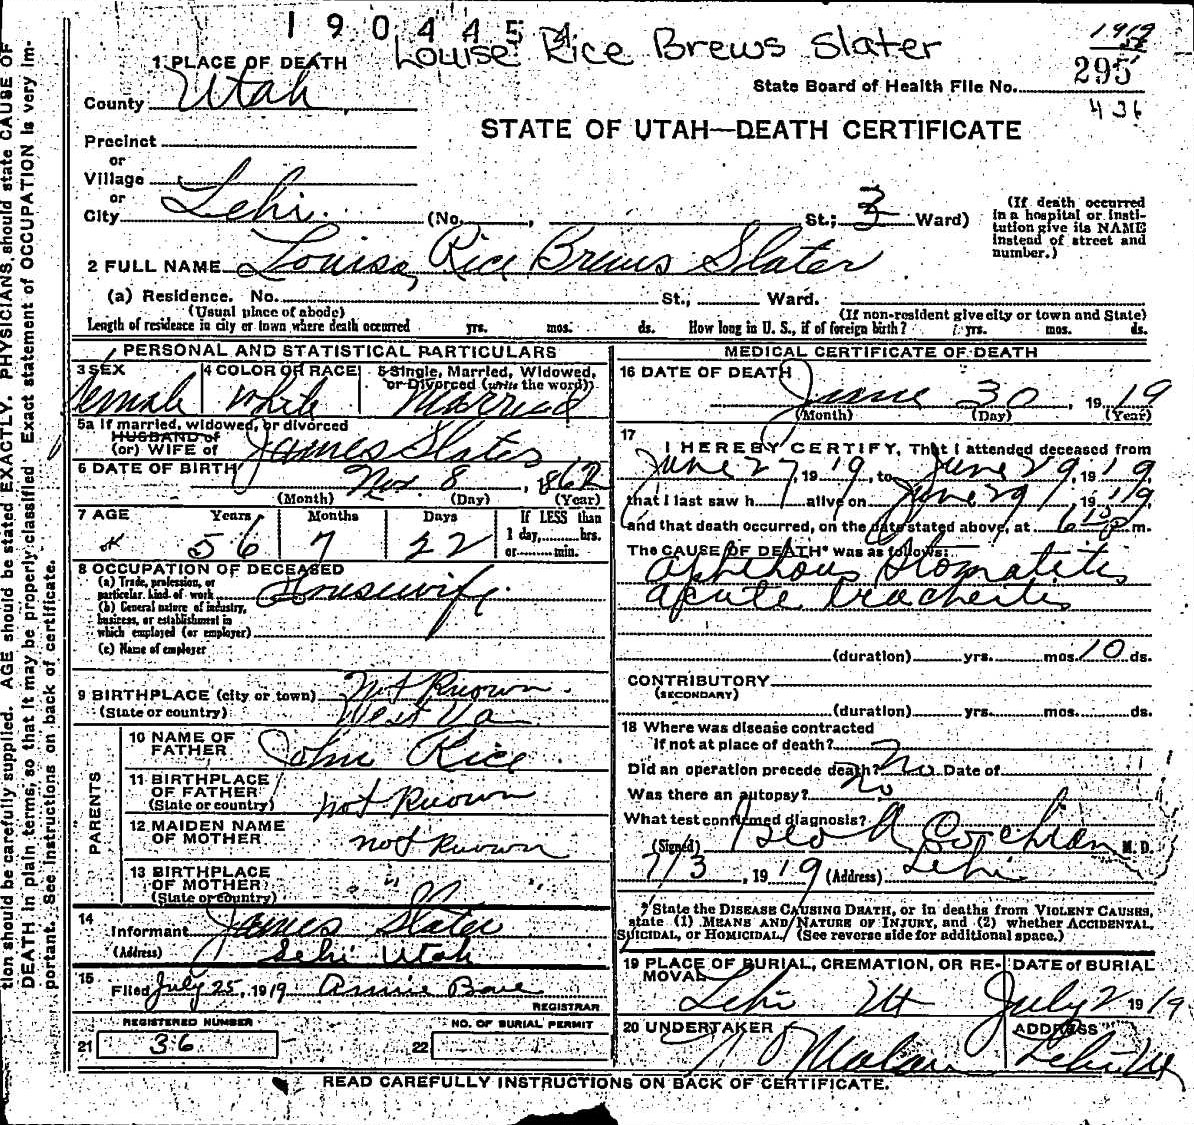 1904454
Louise Rice Brews Slater
1919
295
436
State Board of Health File No.
STATE OF UTAH—DEATH CERTIFICATE
1 PLACE OF DEATH
County Utah
Precinct
or
Village
or
City Lehi (No. , St.; 3 Ward)
(If death occurred in a hospital or insti-
tution give its NAME instead of street and number.)
2 FULL NAME Louisa Rice Brews Slater
(a) Residence. No. St., Ward.
(Usual place of abode) (If non-resident give city or town and State)
Length of residence in city or town where death occurred yrs. mos. ds. How long in U. S., if of foreign birth? yrs. mos. ds.
PERSONAL AND STATISTICAL PARTICULARS
3 SEX Female
4 COLOR OR RACE White
5 Single, Married, Widowed, or Divorced (write the word) Married
5a If married, widowed, or divorced
HUSBAND of
(or) WIFE of James Slater
6 DATE OF BIRTH Nov 8, 1862
(Month) (Day) (Year)
7 AGE Years 56 Months 7 Days 22 If LESS than 1 day, hrs. or min.
8 OCCUPATION OF DECEASED
(a) Trade, profession, or particular kind of work Housewife
(b) General nature of industry, business, or establishment in which employed (or employer)
(c) Name of employer
9 BIRTHPLACE (city or town) Not Known
(State or country) West Va
PARENTS
10 NAME OF FATHER John Rice
11 BIRTHPLACE OF FATHER (State or country) not Known
12 MAIDEN NAME OF MOTHER not Known
13 BIRTHPLACE OF MOTHER (State or country) " " "
14 Informant James Slater
(Address) Lehi Utah
15 Filed July 25, 1919
REGISTRAR
REGISTERED NUMBER
21 36
NO. OF BURIAL PERMIT
22
MEDICAL CERTIFICATE OF DEATH
16 DATE OF DEATH June 30, 1919
(Month) (Day) (Year)
17 I HEREBY CERTIFY, That I attended deceased from
June 27, 1919, to June 29, 1919,
that I last saw h alive on June 29, 1919
and that death occurred, on the date stated above, at m.
The CAUSE OF DEATH* was as follows:
aphthous Stomatitis
acute tracheitis
(duration) yrs. mos. 10 ds.
CONTRIBUTORY
(SECONDARY)
(duration) yrs. mos. ds.
18 Where was disease contracted
if not at place of death?
Did an operation precede death? No Date of
Was there an autopsy? No
What test confirmed diagnosis?
(Signed) Geo A Cochran M. D.
7/3, 1919 (Address) Lehi
* State the DISEASE CAUSING DEATH, or in deaths from VIOLENT CAUSES,
state (1) MEANS AND NATURE OF INJURY, and (2) whether ACCIDENTAL,
SUICIDAL, or HOMICIDAL. (See reverse side for additional space.)
19 PLACE OF BURIAL, CREMATION, OR RE-MOVAL Lehi Ut
DATE of BURIAL July 2 1919
20 UNDERTAKER
ADDRESS Lehi Ut
READ CAREFULLY INSTRUCTIONS ON BACK OF CERTIFICATE.
tion should be carefully supplied. AGE should be stated EXACTLY. PHYSICIANS should state CAUSE OF
DEATH in plain terms, so that it may be properly classified. Exact statement of OCCUPATION is very im-
portant. See instructions on back of certificate.